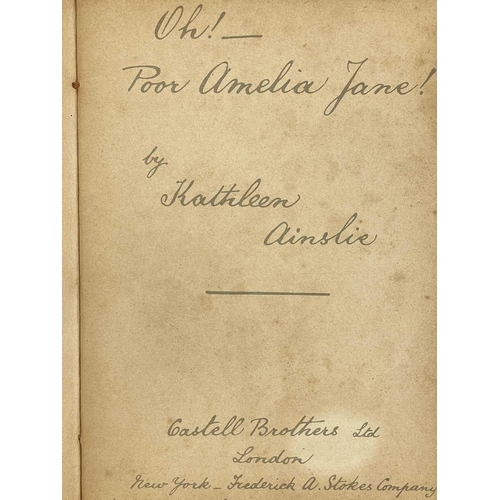 Oh! —
Poor Amelia Jane!
by
Kathleen
Ainslie
Castell Brothers Ltd
London
New York — Frederick A. Stokes Company